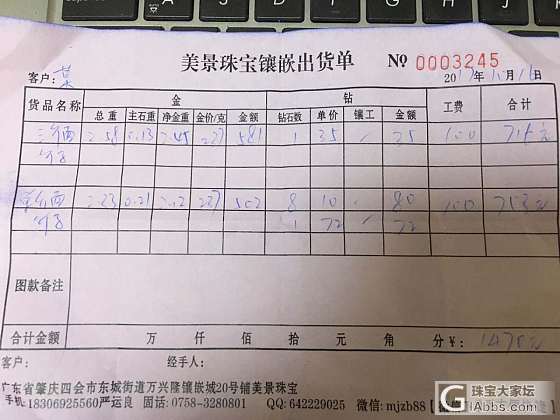 美景珠宝镶嵌出货单 No 0003245
客户: 2017年11月16日
货品名称 金 钻 工费 合计
总重 主石重 净金重 金价/克 金额 钻石数 单价 镶工 金额
2.58 0.13 2.45 237 581 1 35 / 35 100
2.23 0.21 2.12 237 502 8 10 / 80 100
72 72
图款备注
合计金额 万 仟 佰 拾 元 角 分 ¥:
客户: 经手人:
广东省肇庆四会市东城街道万兴隆镶嵌城20号铺美景珠宝
手机:18306925560严运良 固话:0758-3280801 QQ:642229025 微信:mjzb88
珠宝大家坛
GiAbobs.com